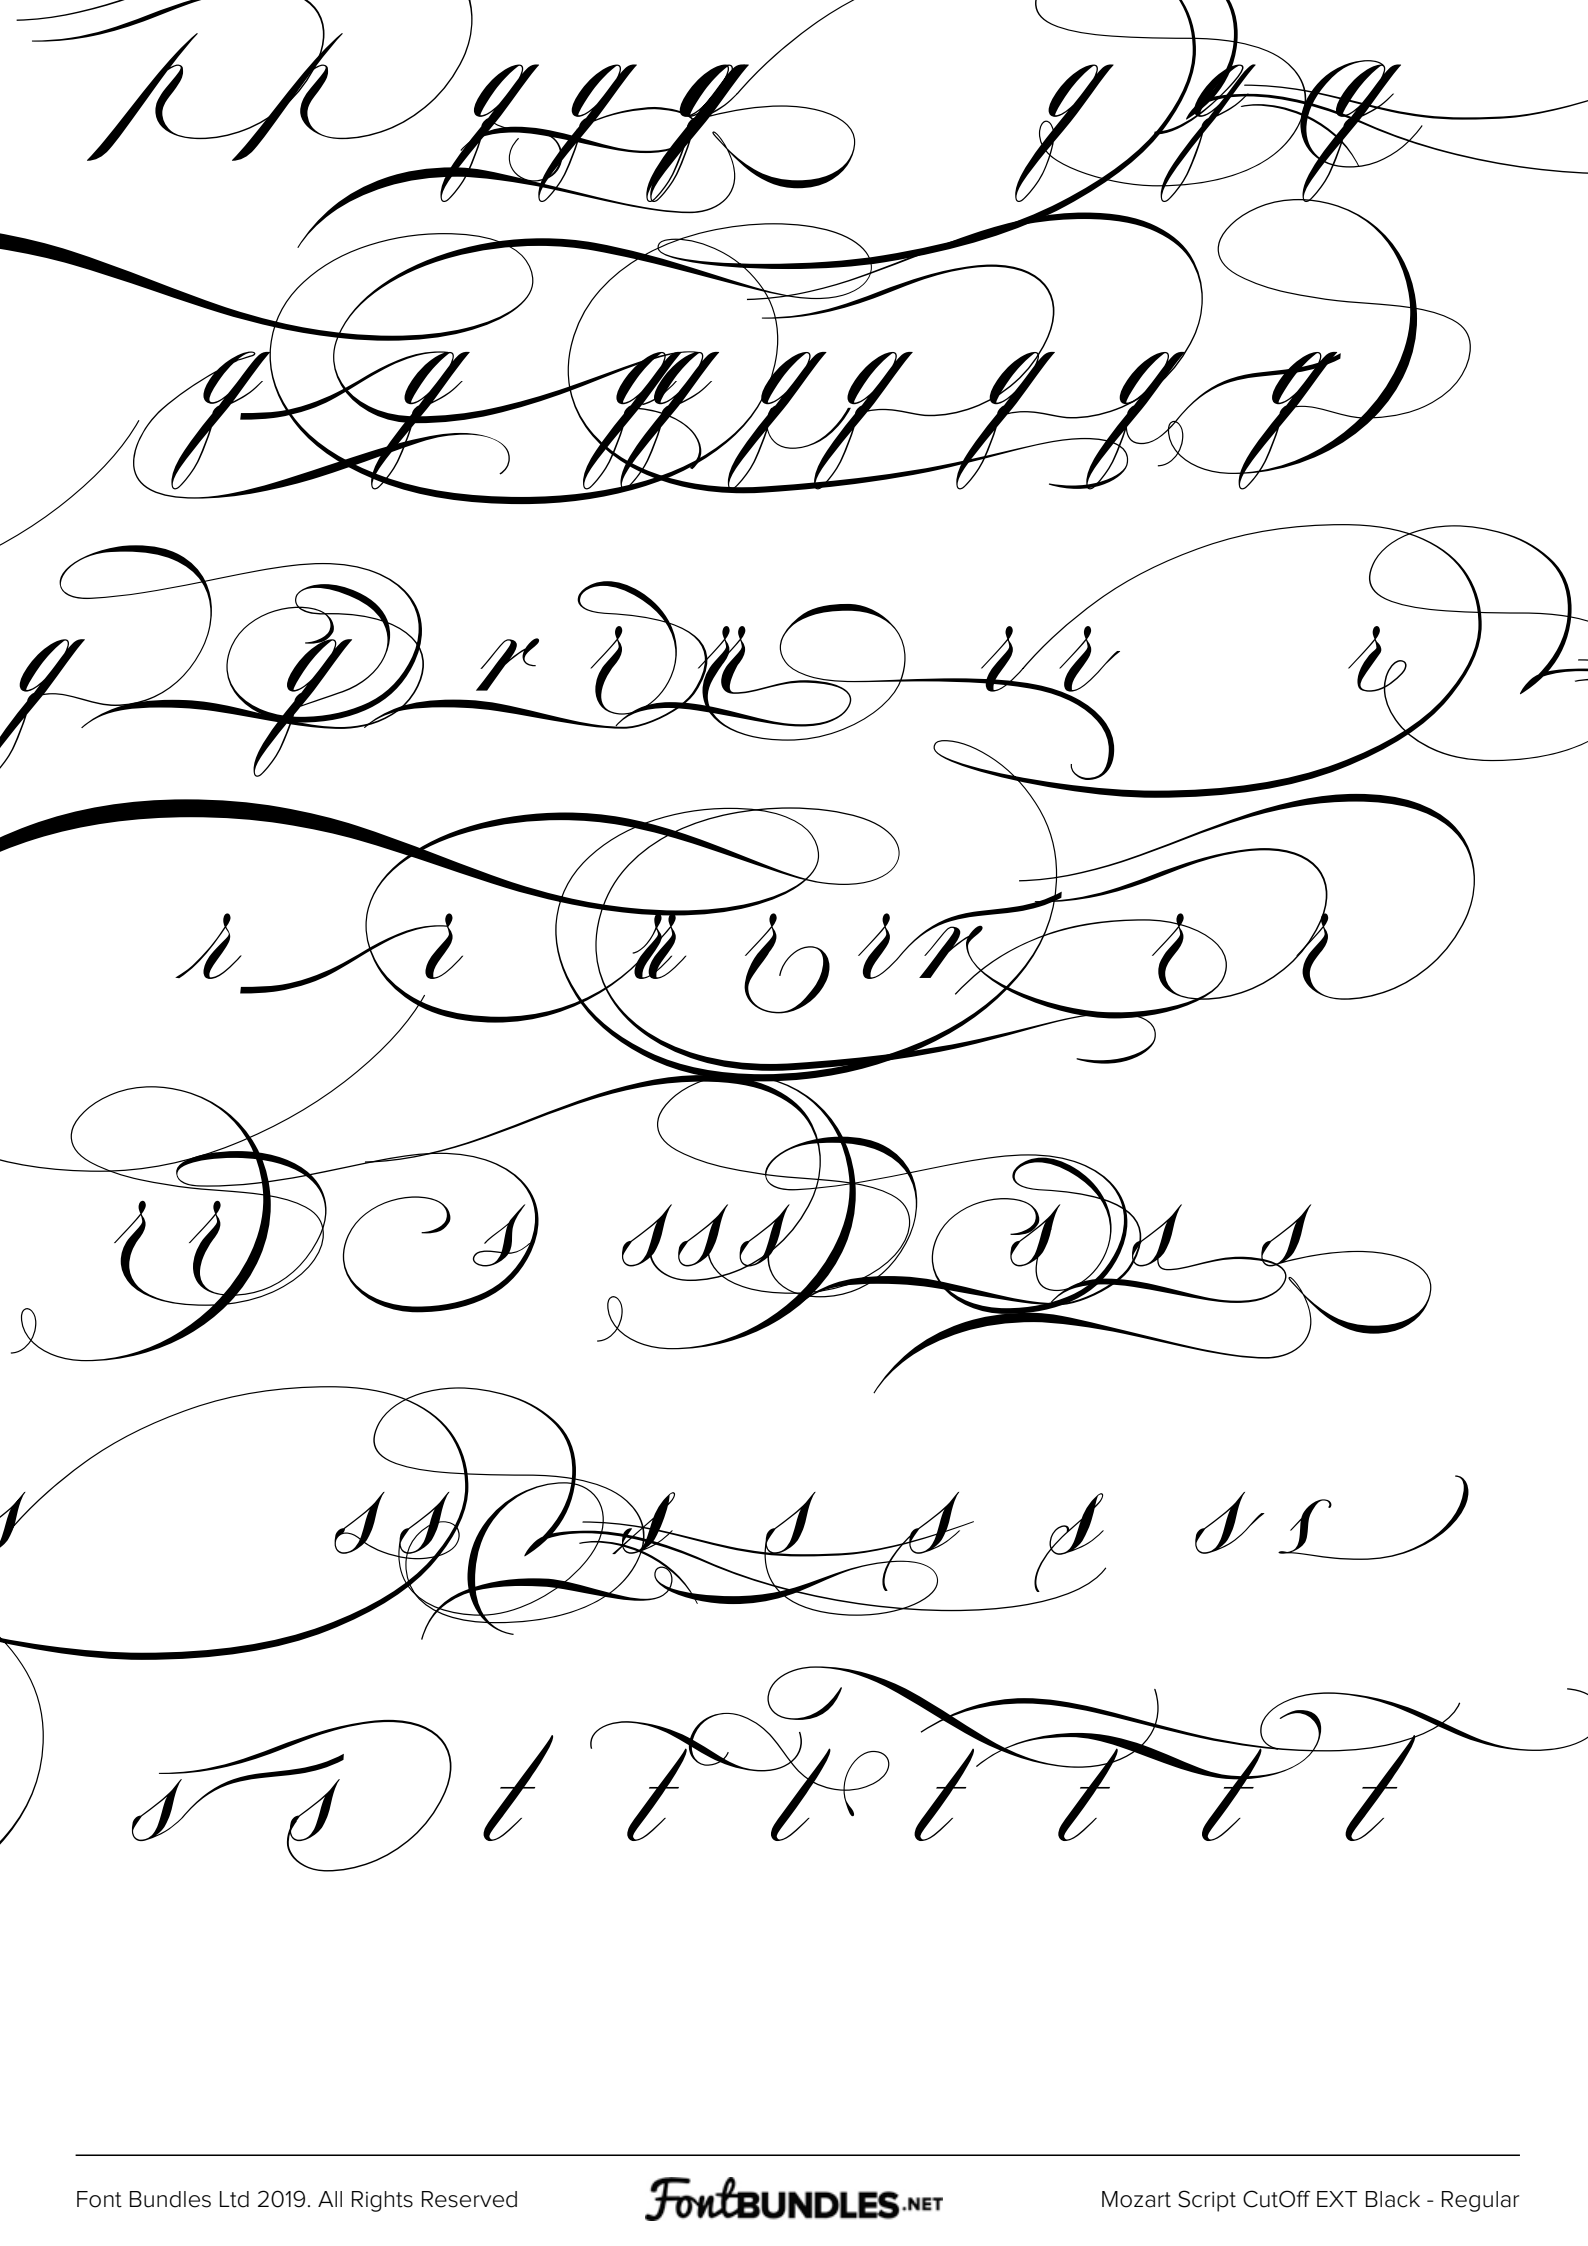 p p q q q q q q
q q q q q q q q q
q q r r r r r r r
r r r r r r r r r r
r r s s s s s s s
s s s s s s s s s s
s s t t t t t t t
Font Bundles Ltd 2019. All Rights Reserved
FontBUNDLES.NET
Mozart Script CutOff EXT Black - Regular